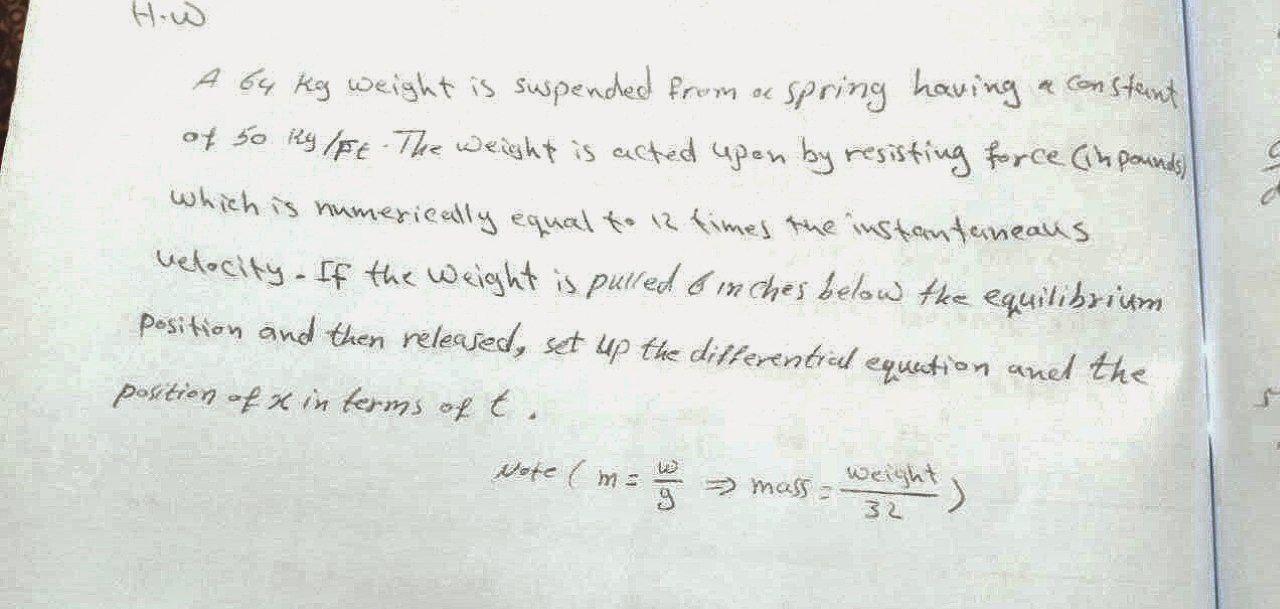 H.W
A 64 kg weight is suspended from a spring having a constant
of 50 kg/Ft. The weight is acted upon by resisting force (in pounds)
which is numerically equal to 12 times the instantaneaus
velocity. If the weight is pulled 6 inches below the equilibrium
position and then released, set up the differential equation and the
position of x in terms of t.
Note ( m = w/g ⇒ mass = weight/32 )